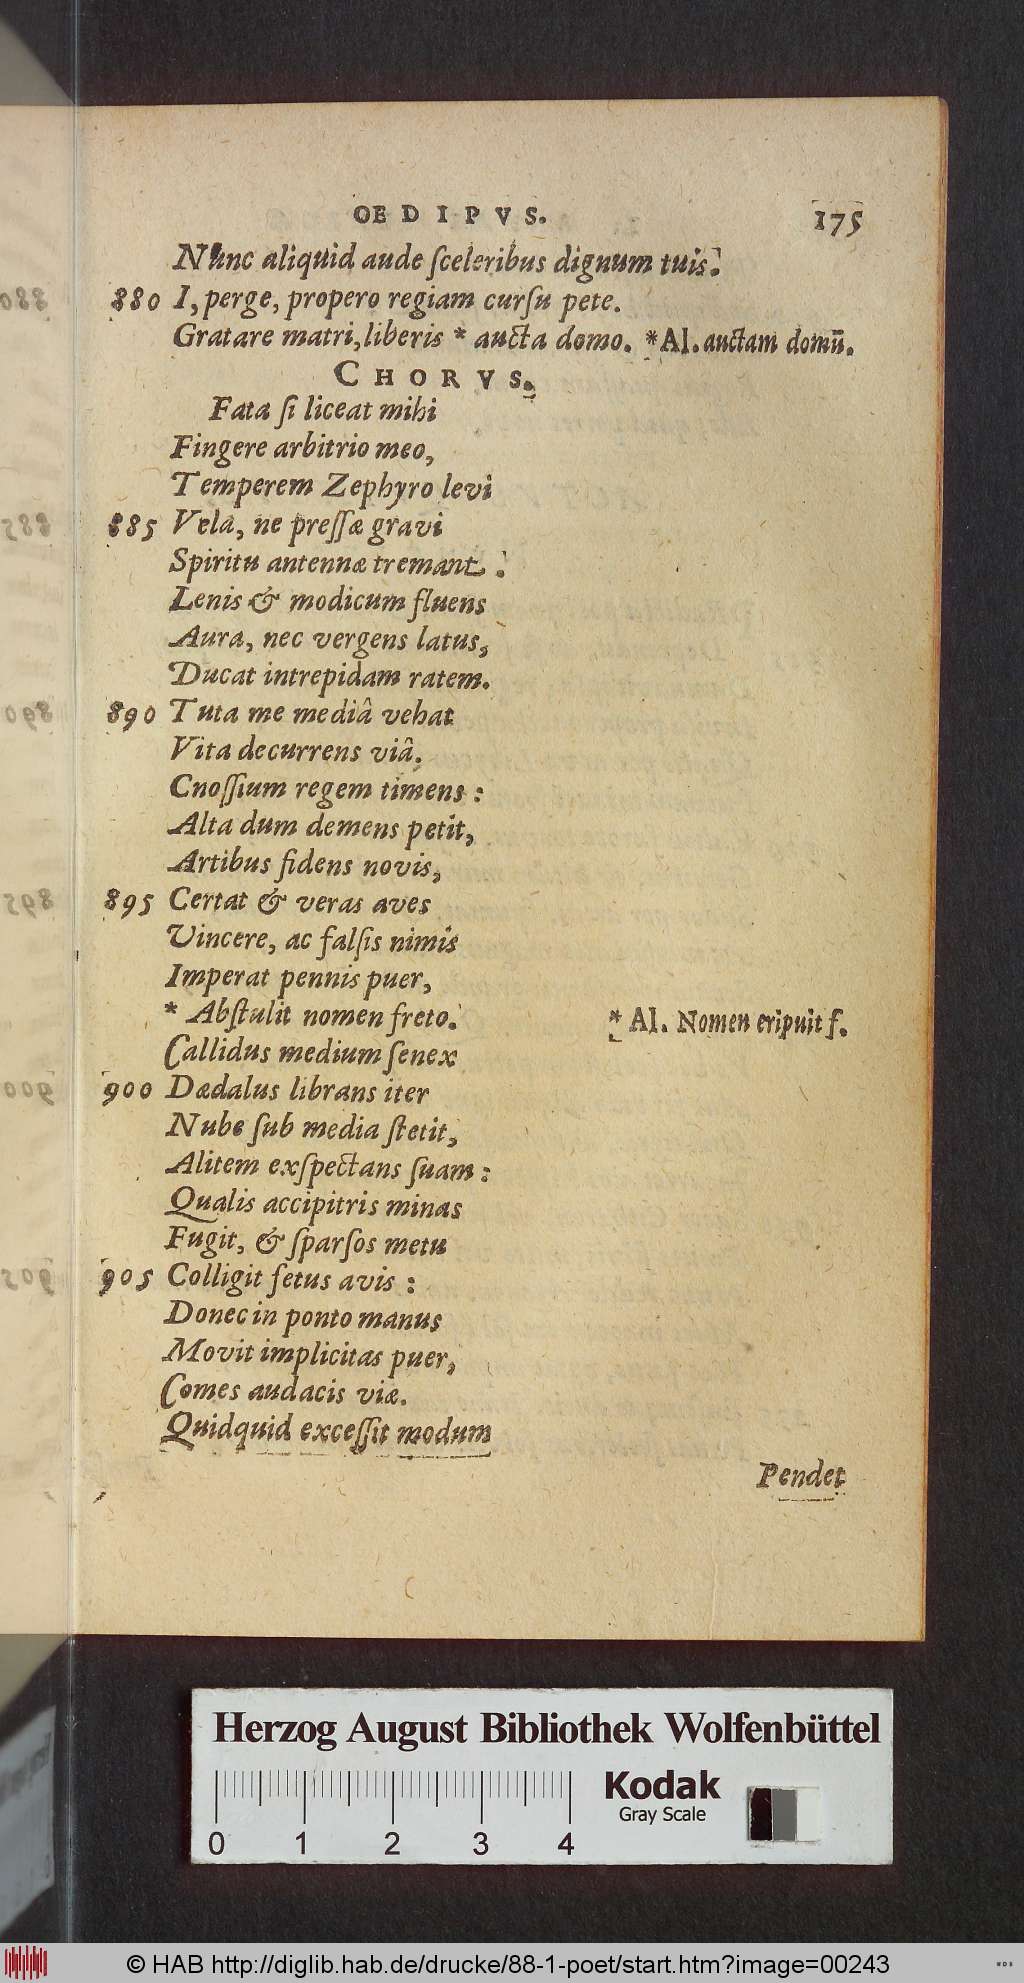 OEDIPVS. 175
Nunc aliquid aude ſceleribus dignum tuis.
880 I, perge, propero regiam curſu pete.
Gratare matri, liberis * aucta domo. *Al. auctam domū.
CHORVS.
Fata ſi liceat mihi
Fingere arbitrio meo,
Temperem Zephyro levi
885 Vela, ne preſſæ gravi
Spiritu antennæ tremant.
Lenis & modicum fluens
Aura, nec vergens latus,
Ducat intrepidam ratem.
890 Tuta me mediâ vehat
Vita decurrens viâ.
Cnoſſium regem timens:
Alta dum demens petit,
Artibus fidens novis,
895 Certat & veras aves
Vincere, ac falſis nimis
Imperat pennis puer,
* Abſtulit nomen freto. * Al. Nomen eripuit f.
Callidus medium ſenex
900 Dædalus librans iter
Nube ſub media ſtetit,
Alitem exſpectans ſuam:
Qualis accipitris minas
Fugit, & ſparſos metu
905 Colligit fetus avis:
Donec in ponto manus
Movit implicitas puer,
Comes audacis viæ.
Quidquid exceſſit modum
Pendet
Herzog August Bibliothek Wolfenbüttel
Kodak
Gray Scale
0 1 2 3 4
© HAB http://diglib.hab.de/drucke/88-1-poet/start.htm?image=00243